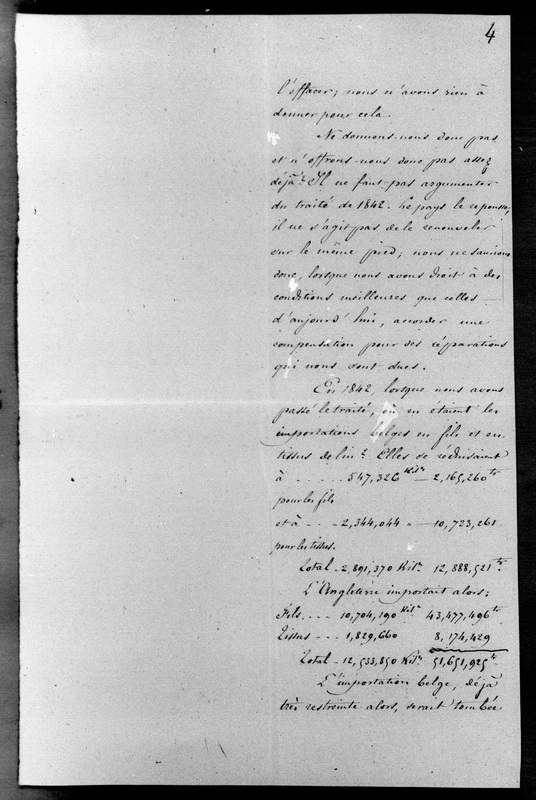 4
l'effacer; nous n'avons rien à
donner pour cela.
Ne donnons-nous donc pas
et n'offrons-nous donc pas assez
déjà? Il ne faut pas argumenter
du traité de 1842. Le pays le repousse,
il ne s'agit pas de le renouveler
sur le même pied; nous ne saurions
donc, lorsque nous avons droit à des
conditions meilleures que celles
d'aujourd'hui, accorder une
compensation pour des réparations
qui nous sont dues.
En 1842, lorsque nous avons
passé le traité, où en étaient les
importations belges en fils et en
tissus de lin? Elles se réduisaient
à ..... 547,326 Kils — 2,165,260 fs
pour les fils
et à ... 2,344,044 " — 10,723,261
pour les tissus.
Total - 2,891,370 Kils 12,888,521 fs.
L'Angleterre importait alors:
Fils ... 10,704,190 Kils 43,477,496 fs
Tissus ... 1,829,660 8,174,429
Total - 12,533,850 Kils 51,651,925 fs
L'importation belge, déjà
très restreinte alors, serait tombée